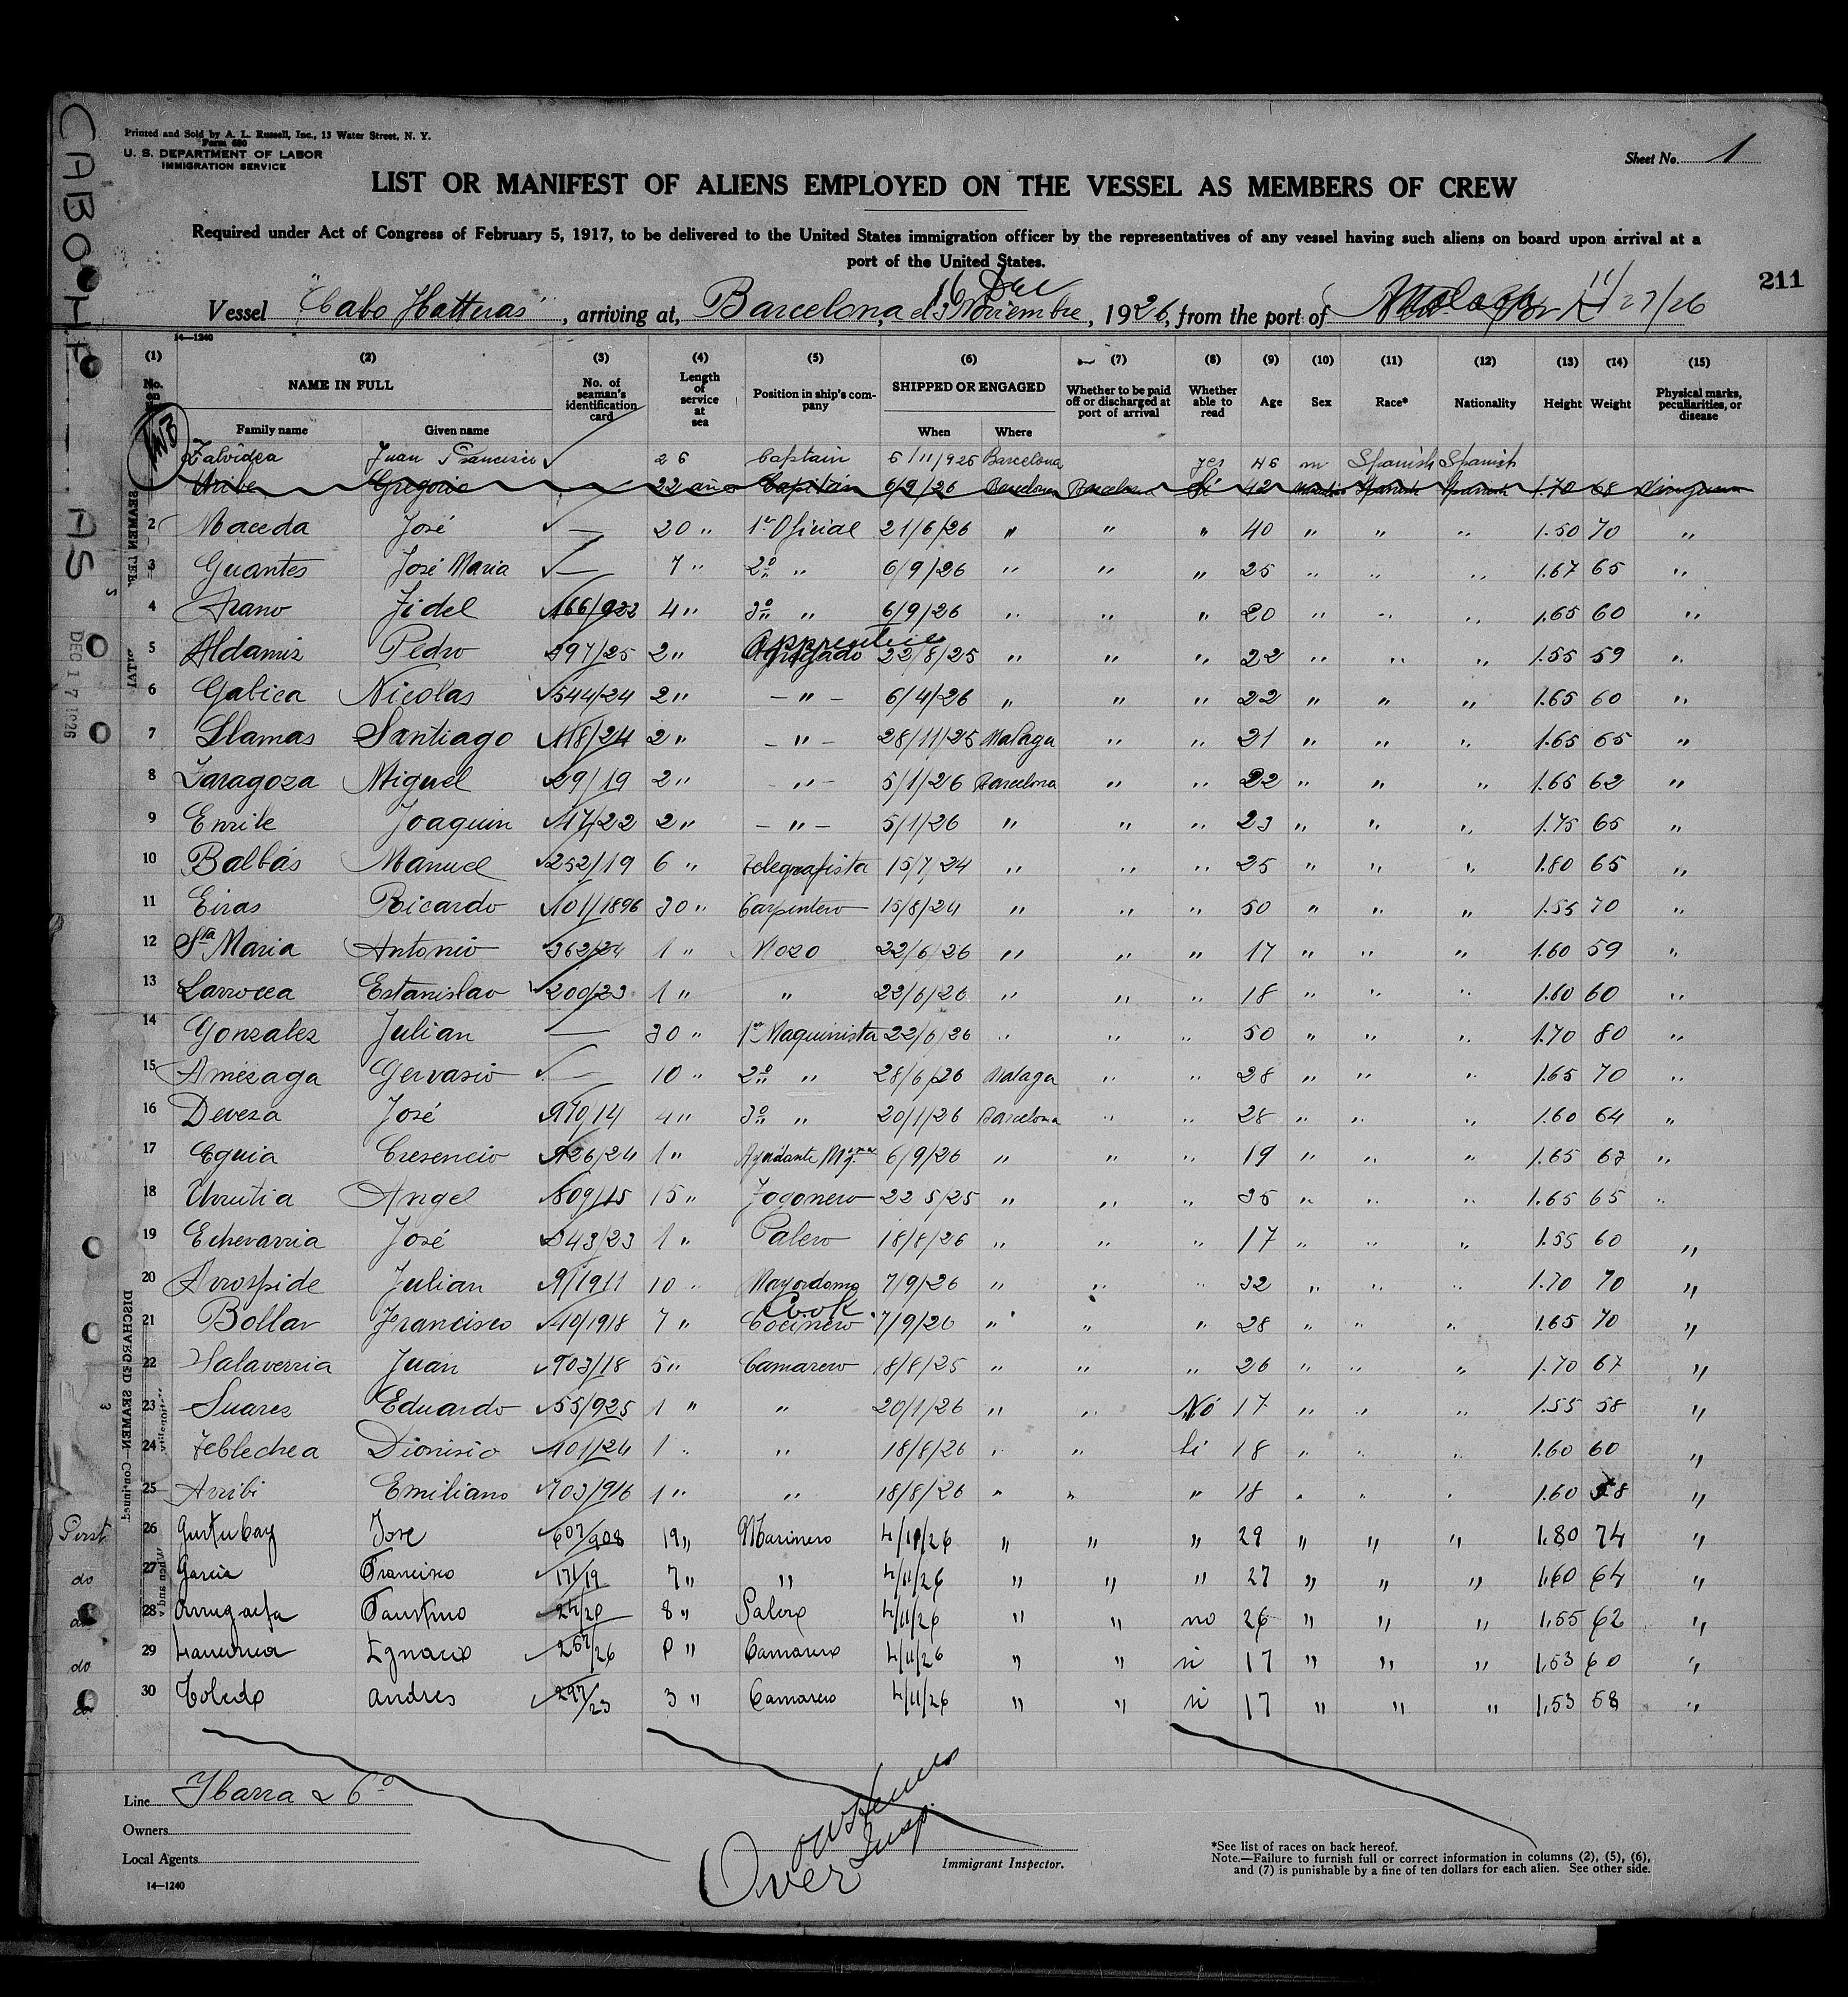 CABO HATTERAS
Printed and Sold by A. L. Russell, Inc., 13 Water Street, N. Y.
Form 680
U. S. DEPARTMENT OF LABOR
IMMIGRATION SERVICE
Sheet No. 1
LIST OR MANIFEST OF ALIENS EMPLOYED ON THE VESSEL AS MEMBERS OF CREW
Required under Act of Congress of February 5, 1917, to be delivered to the United States immigration officer by the representatives of any vessel having such aliens on board upon arrival at a
port of the United States.
211
16 Dec
Vessel "Cabo Hatteras", arriving at, Barcelona, Noviembre, 1926, from the port of 27/26
14—1240
(1) (2) (3) (4) (5) (6) (7) (8) (9) (10) (11) (12) (13) (14) (15)
No. NAME IN FULL No. of seaman's identification card Length of service at sea Position in ship's company SHIPPED OR ENGAGED Whether to be paid off or discharged at port of arrival Whether able to read Age Sex Race* Nationality Height Weight Physical marks, peculiarities, or disease
Family name Given name When Where
Zalvidea Juan Francisco 26 Captain 5/11/926 Barcelona yes 46 m Spanish Spanish
Uribe Gregorio 22 años Capitán 6/9/26 Barcelona Barcelona Si 42 Spanish Spanish 1.70 68 Ninguna
2 Maceda José — 20 " 1er Oficial 21/6/26 " " " 40 " " " 1.50 70 "
3 Guantes José Maria — 7 " 2o " 6/9/26 " " " 25 " " " 1.67 65 "
4 Arano Fidel 166/922 4 " 3o " 6/9/26 " " " 20 " " " 1.65 60 "
Apprentice
5 Aldamiz Pedro 397/25 2 " Agregado 22/8/25 " " " 22 " " " 1.55 59 "
6 Gabica Nicolas 544/24 2 " — " — 6/4/26 " " " 22 " " " 1.65 60 "
7 Llamas Santiago 118/24 2 " — " — 28/11/25 Malaga " " 21 " " " 1.65 65 "
8 Zaragoza Miguel 29/19 2 " — " — 5/1/26 Barcelona " " 22 " " " 1.65 62 "
9 Enrile Joaquin 17/22 2 " — " — 5/1/26 " " " 23 " " " 1.75 65 "
10 Balbás Manuel 252/19 6 " Telegrafista 15/7/24 " " " 25 " " " 1.80 65 "
11 Eiras Ricardo 101/1896 30 " Carpintero 15/8/24 " " " 50 " " " 1.55 70 "
12 Sta Maria Antonio 362/24 1 " Mozo 22/6/26 " " " 17 " " " 1.60 59 "
13 Larrocea Estanislao 200/23 1 " " 22/6/26 " " " 18 " " " 1.60 60 "
14 Gonzalez Julian — 30 " 1er Maquinista 22/6/26 " " " 50 " " " 1.70 80 "
15 Amézaga Gervasio — 10 " 2o " 28/6/26 Malaga " " 28 " " " 1.65 70 "
16 Deveza José 4 " 3o " 20/1/26 Barcelona " " 28 " " " 1.60 64 "
17 Eguia Cresencio 926/24 1 " Ayudante 6/9/26 " " " 19 " " " 1.65 62 "
18 Urrutia Angel 809/15 15 " Fogonero 22 5/25 " " " 35 " " " 1.65 65 "
19 Echevarria José 343/23 1 " Palero 18/8/26 " " " 17 " " " 1.55 60 "
20 Arrospide Julian 10 " Mayordomo 7/9/26 " " " 32 " " " 1.70 70 "
Cook
21 Bollar Francisco 40/1918 7 " Cocinero 7/9/26 " " " 28 " " " 1.65 70 "
22 Salaverria Juan 903/18 5 " Camarero 18/8/25 " " " 26 " " " 1.70 67 "
23 Suarez Eduardo 55/925 1 " " 20/1/26 " " No 17 " " " 1.55 58 "
24 Teblechea Dionisio 101/24 1 " " 18/8/26 " " Si 18 " " " 1.60 60 "
25 Arribi Emiliano 703/916 1 " " 18/8/26 " " " 18 " " " 1.60 58 "
First 26 Gurtubay Jose 607/908 19 " Marinero 4/11/26 " " " 29 " " " 1,80 74 "
do 27 Garcia Francisco 171/19 7 " " 4/11/26 " " " 27 " " " 1,60 64 "
do 28 Faustino 24/20 8 " Palero 4/11/26 " " no 26 " " " 1,55 62 "
do 29 Ignacio 257/26 0 " Camarero 4/11/26 " " si 17 " " " 1,53 60 "
do 30 Toledo Andres 297/23 3 " Camarero 4/11/26 " " si 17 " " " 1,53 58 "
DEC 17 1926
DISCHARGED SEAMEN—Continued
Line Ybarra & Co
Owners
Local Agents
14—1240
Insp.
Over
Immigrant Inspector.
*See list of races on back hereof.
Note.—Failure to furnish full or correct information in columns (2), (5), (6),
and (7) is punishable by a fine of ten dollars for each alien. See other side.